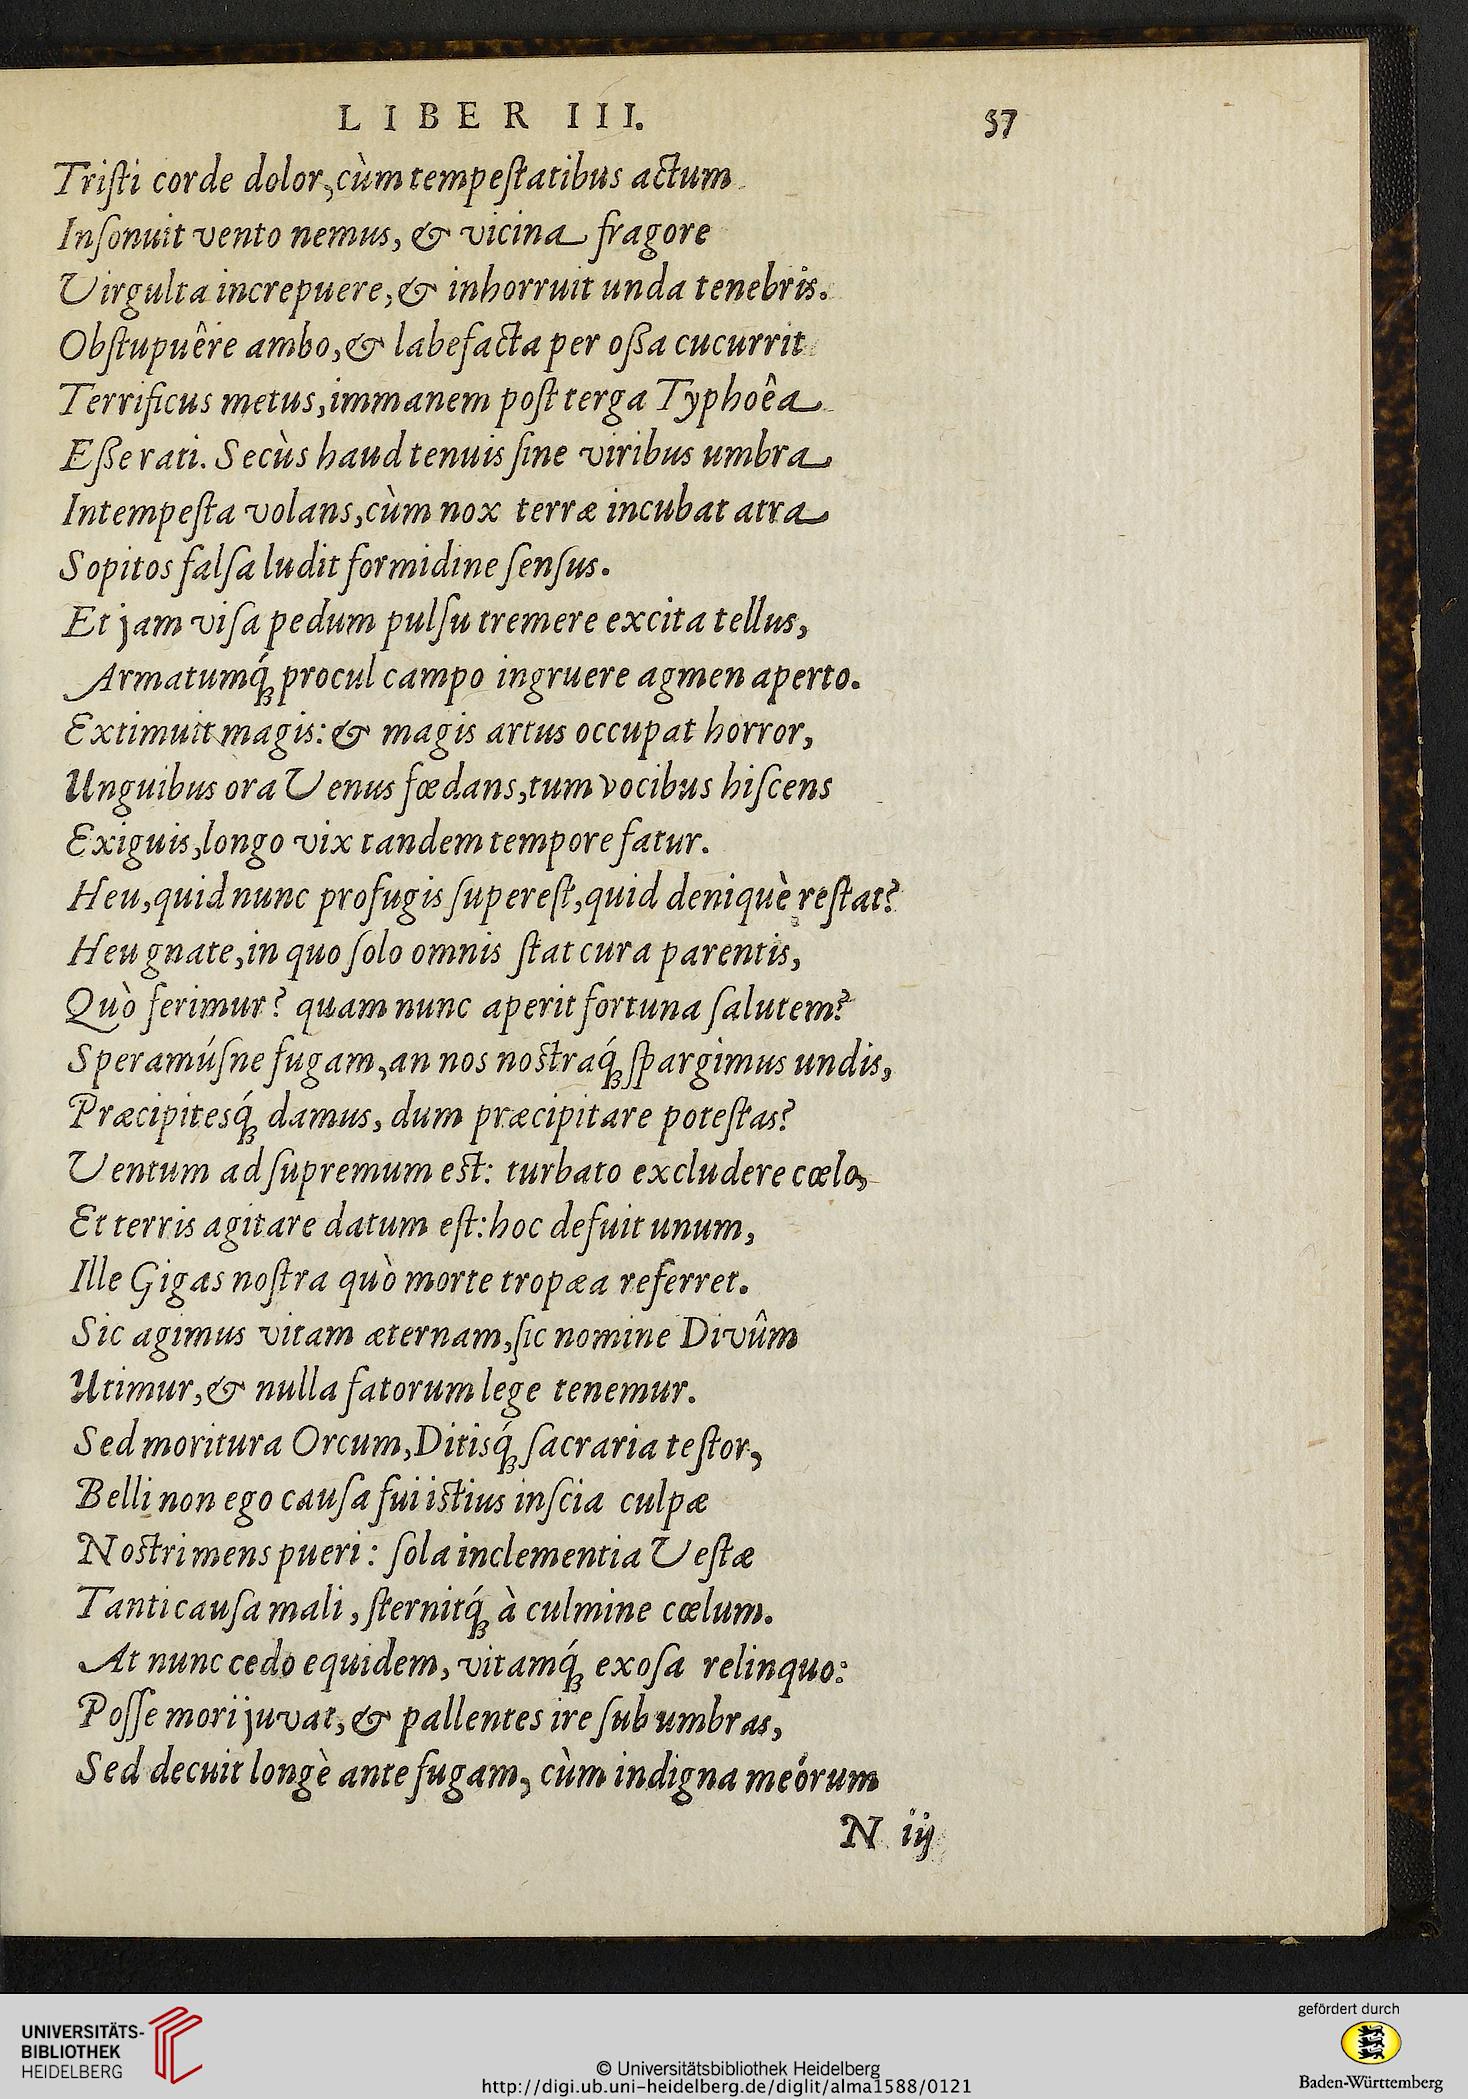 LIBER III. 57
Tristi corde dolor, cùm tempestatibus actum
Insonuit vento nemus, & vicina fragore
Virgulta increpuere, & inhorruit unda tenebris.
Obstupuêre ambo, & labefacta per ossa cucurrit
Terrificus metus, immanem post terga Typhoêa
Esse rati. Secùs haud tenuis sine viribus umbra
Intempesta volans, cùm nox terræ incubat atra
Sopitos falsa ludit formidine sensus.
Et jam visa pedum pulsu tremere excita tellus,
Armatumq́; procul campo ingruere agmen aperto.
Extimuit magis: & magis artus occupat horror,
Unguibus ora Venus fœdans, tum vocibus hiscens
Exiguis, longo vix tandem tempore fatur.
Heu, quid nunc profugis superest, quid deniquè restat?
Heu gnate, in quo solo omnis stat cura parentis,
Quò ferimur? quam nunc aperit fortuna salutem?
Speramúsne fugam, an nos nostraq́; spargimus undis,
Præcipitesq́; damus, dum præcipitare potestas?
Ventum ad supremum est: turbato excludere cœlo,
Et terris agitare datum est: hoc defuit unum,
Ille Gigas nostra quò morte tropæa referret.
Sic agimus vitam æternam, sic nomine Divûm
Utimur, & nulla fatorum lege tenemur.
Sed moritura Orcum, Ditisq́; sacraria testor,
Belli non ego causa fui istius inscia culpæ
Nostri mens pueri: sola inclementia Vestæ
Tanti causa mali, sternitq́; à culmine cœlum.
At nunc cedo equidem, vitamq́; exosa relinquo:
Posse mori juvat, & pallentes ire sub umbras,
Sed decuit longè ante fugam, cùm indigna meorum
N iij
UNIVERSITÄTS-
BIBLIOTHEK
HEIDELBERG
© Universitätsbibliothek Heidelberg
http://digi.ub.uni-heidelberg.de/diglit/alma1588/0121
gefördert durch
Baden-Württemberg